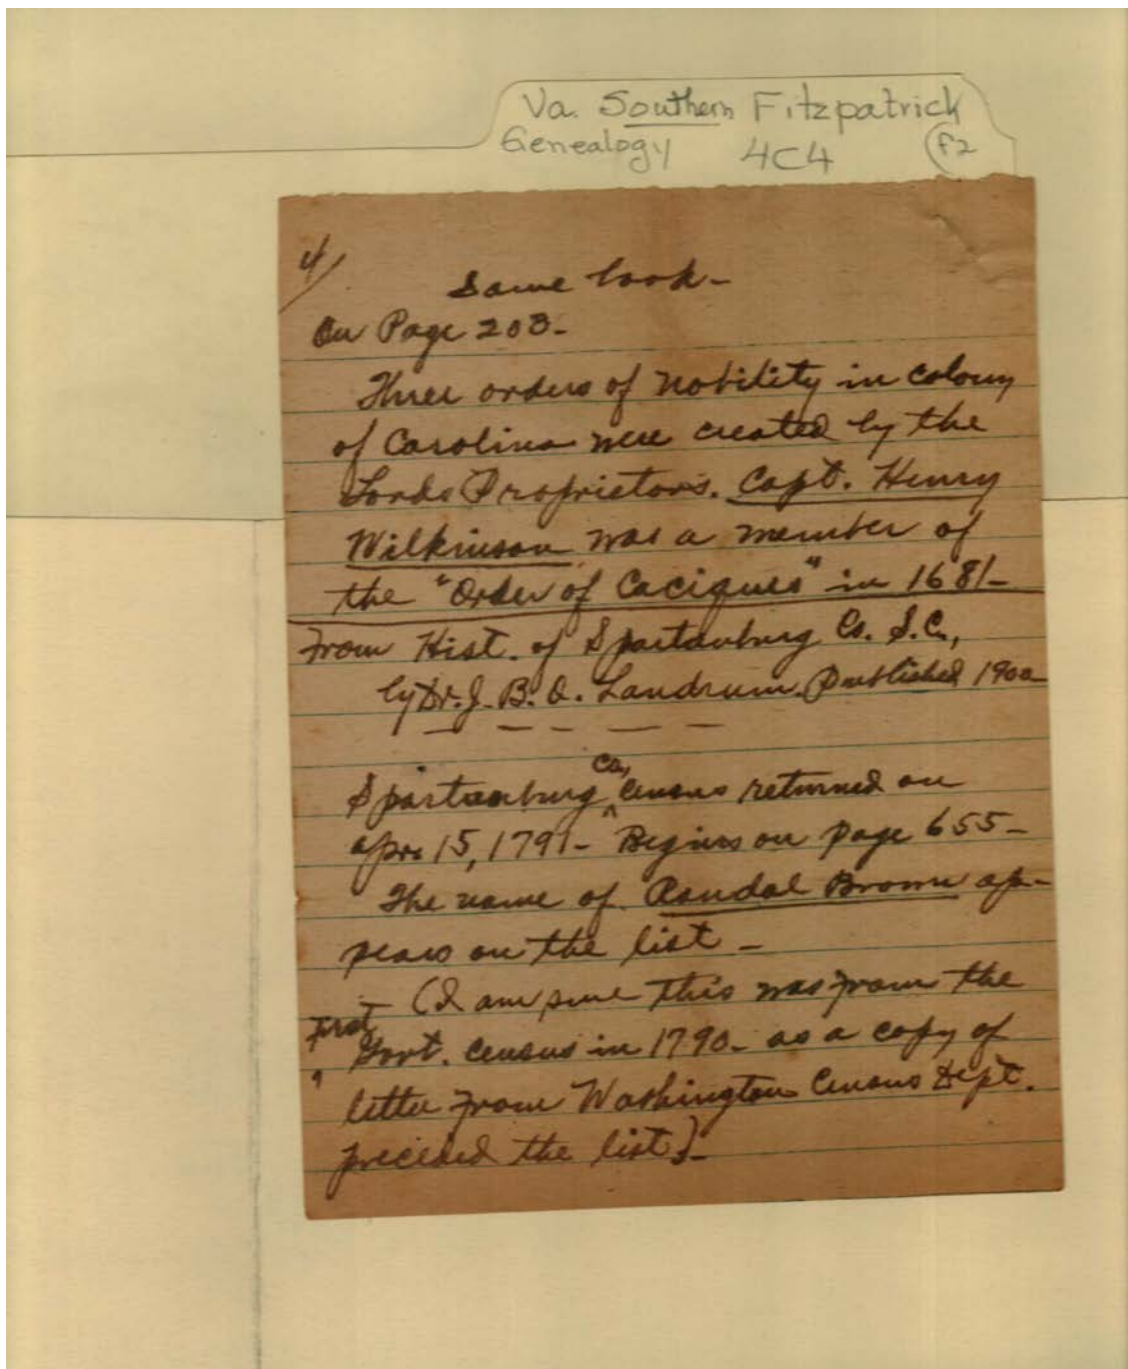 Va. Southern Fitzpatrick
Genealogy 4C4 F2
4/
Same book-
On Page 203-
Three orders of nobility in colony
of Carolina were created by the
Lords Proprietors. Capt. Henry
Wilkinson was a member of
the "Order of Caciques" in 1681-
From Hist. of Spartanburg Co. S.C.,
by Dr. J. B. O. Landrum. Published 1900
Spartanburg Co, Census returned on
Apr. 15, 1791- Begins on page 655-
The name of Randal Brown ap-
pears on the list -
(I am sure this was from the
First Govt. Census in 1790- as a copy of
letter from Washington Census Dept.
preceded the list)-